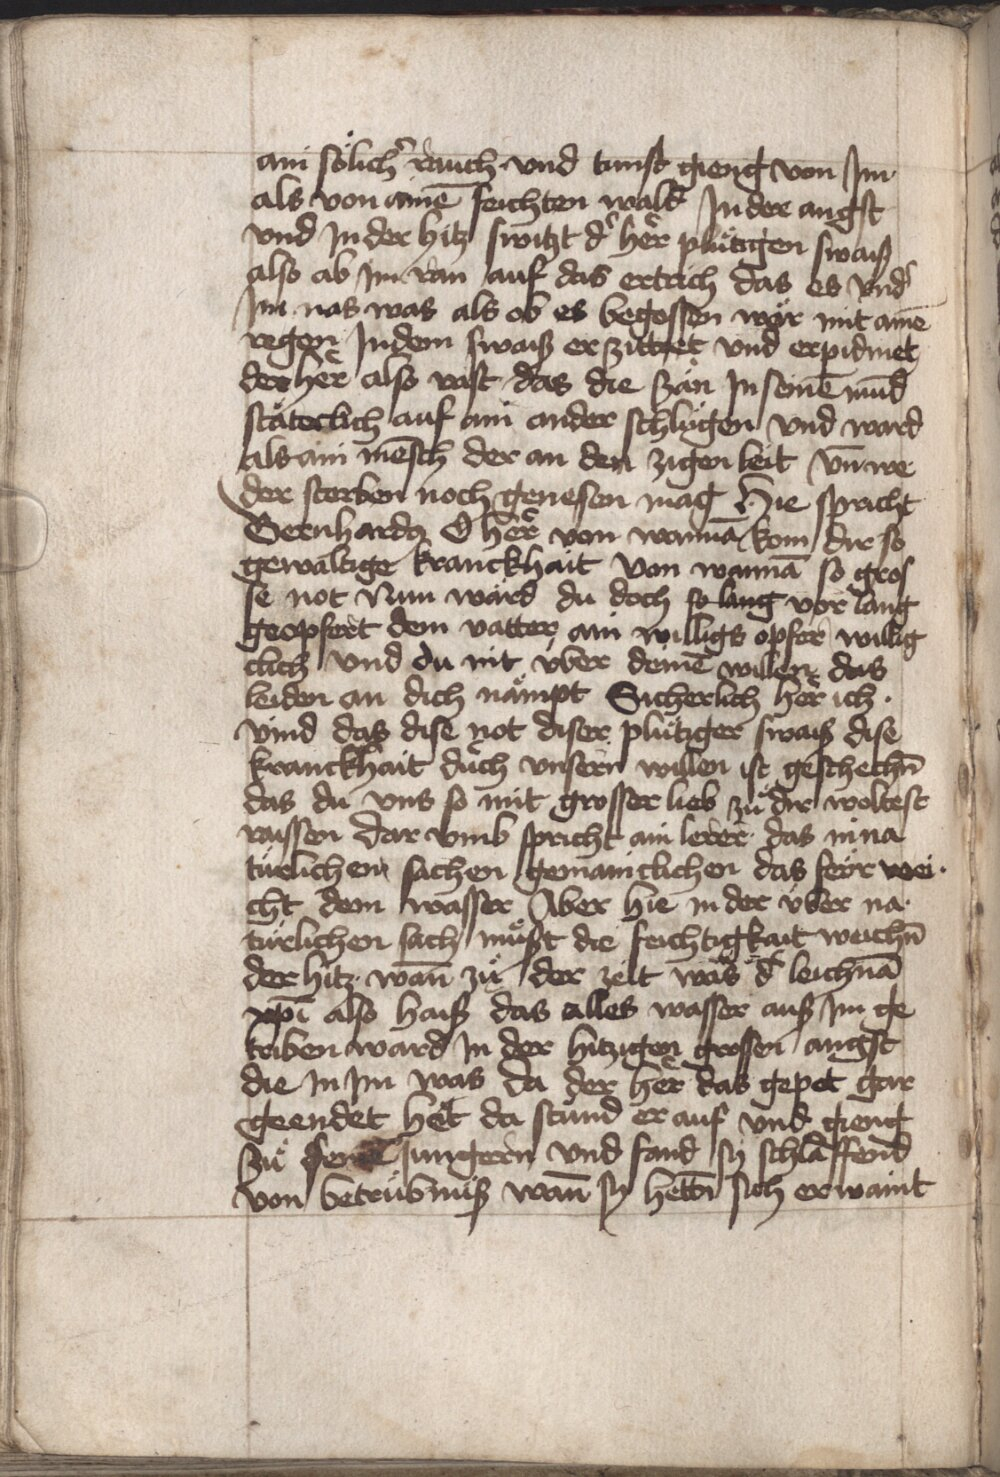 ain sölicher rauch und tunst gieng von Im
als von ainē feichten wald In der angst
vnd In der hitz switzt d' her plütigen swaiß
also ab Im ran auf das ertrich das es vnd'
Im nas was als ob es begossen wär mit ainē
regen In dem swaiß erzittret vnd erpidmet
der her also vast das die zän In seinē mūd
stäterlich auf ain ander schlügen vnd ward
als ain mēsch der an den zigen leit vn̄ we
der sterben noch genesen mag Hie spricht
Bernhardꝯ O her von wannā kom dir so
gewaltige kranckhait von wannā so gros
se not Nun ward du doch so lang vor lang
geopfert dem vatter ain willigs opfer willig
clich vnd du nit vber deinē willen das
leiden an dich nämpt Sicherlich her ich
vind das dise not diser plütiger swaiß dise
kranckhait duch vnsern willen ist geschechn̄
das du vns so mit grosser lieb zü dir woltest
raissen dar vmb spricht ain lerer das in na
türlichen sachen gemainclichen das feür wei
cht dem wasser Aber hie in der vber na
türlichen sach müßt die feichtigkait weichn̄
der hitz wan̄ zü der zeit was d' leichnā
xp̄i also haiß das alles wasser auß Im ge
triben ward In der hitzigen grossen angst
die In Im was da der her das gepet gar
geendet het da stünd er auf vnd gieng
zü seinē Iungern vnd fand sy schlaffend
von betrübnuß wan̄ sy hettn̄ sich erwaint